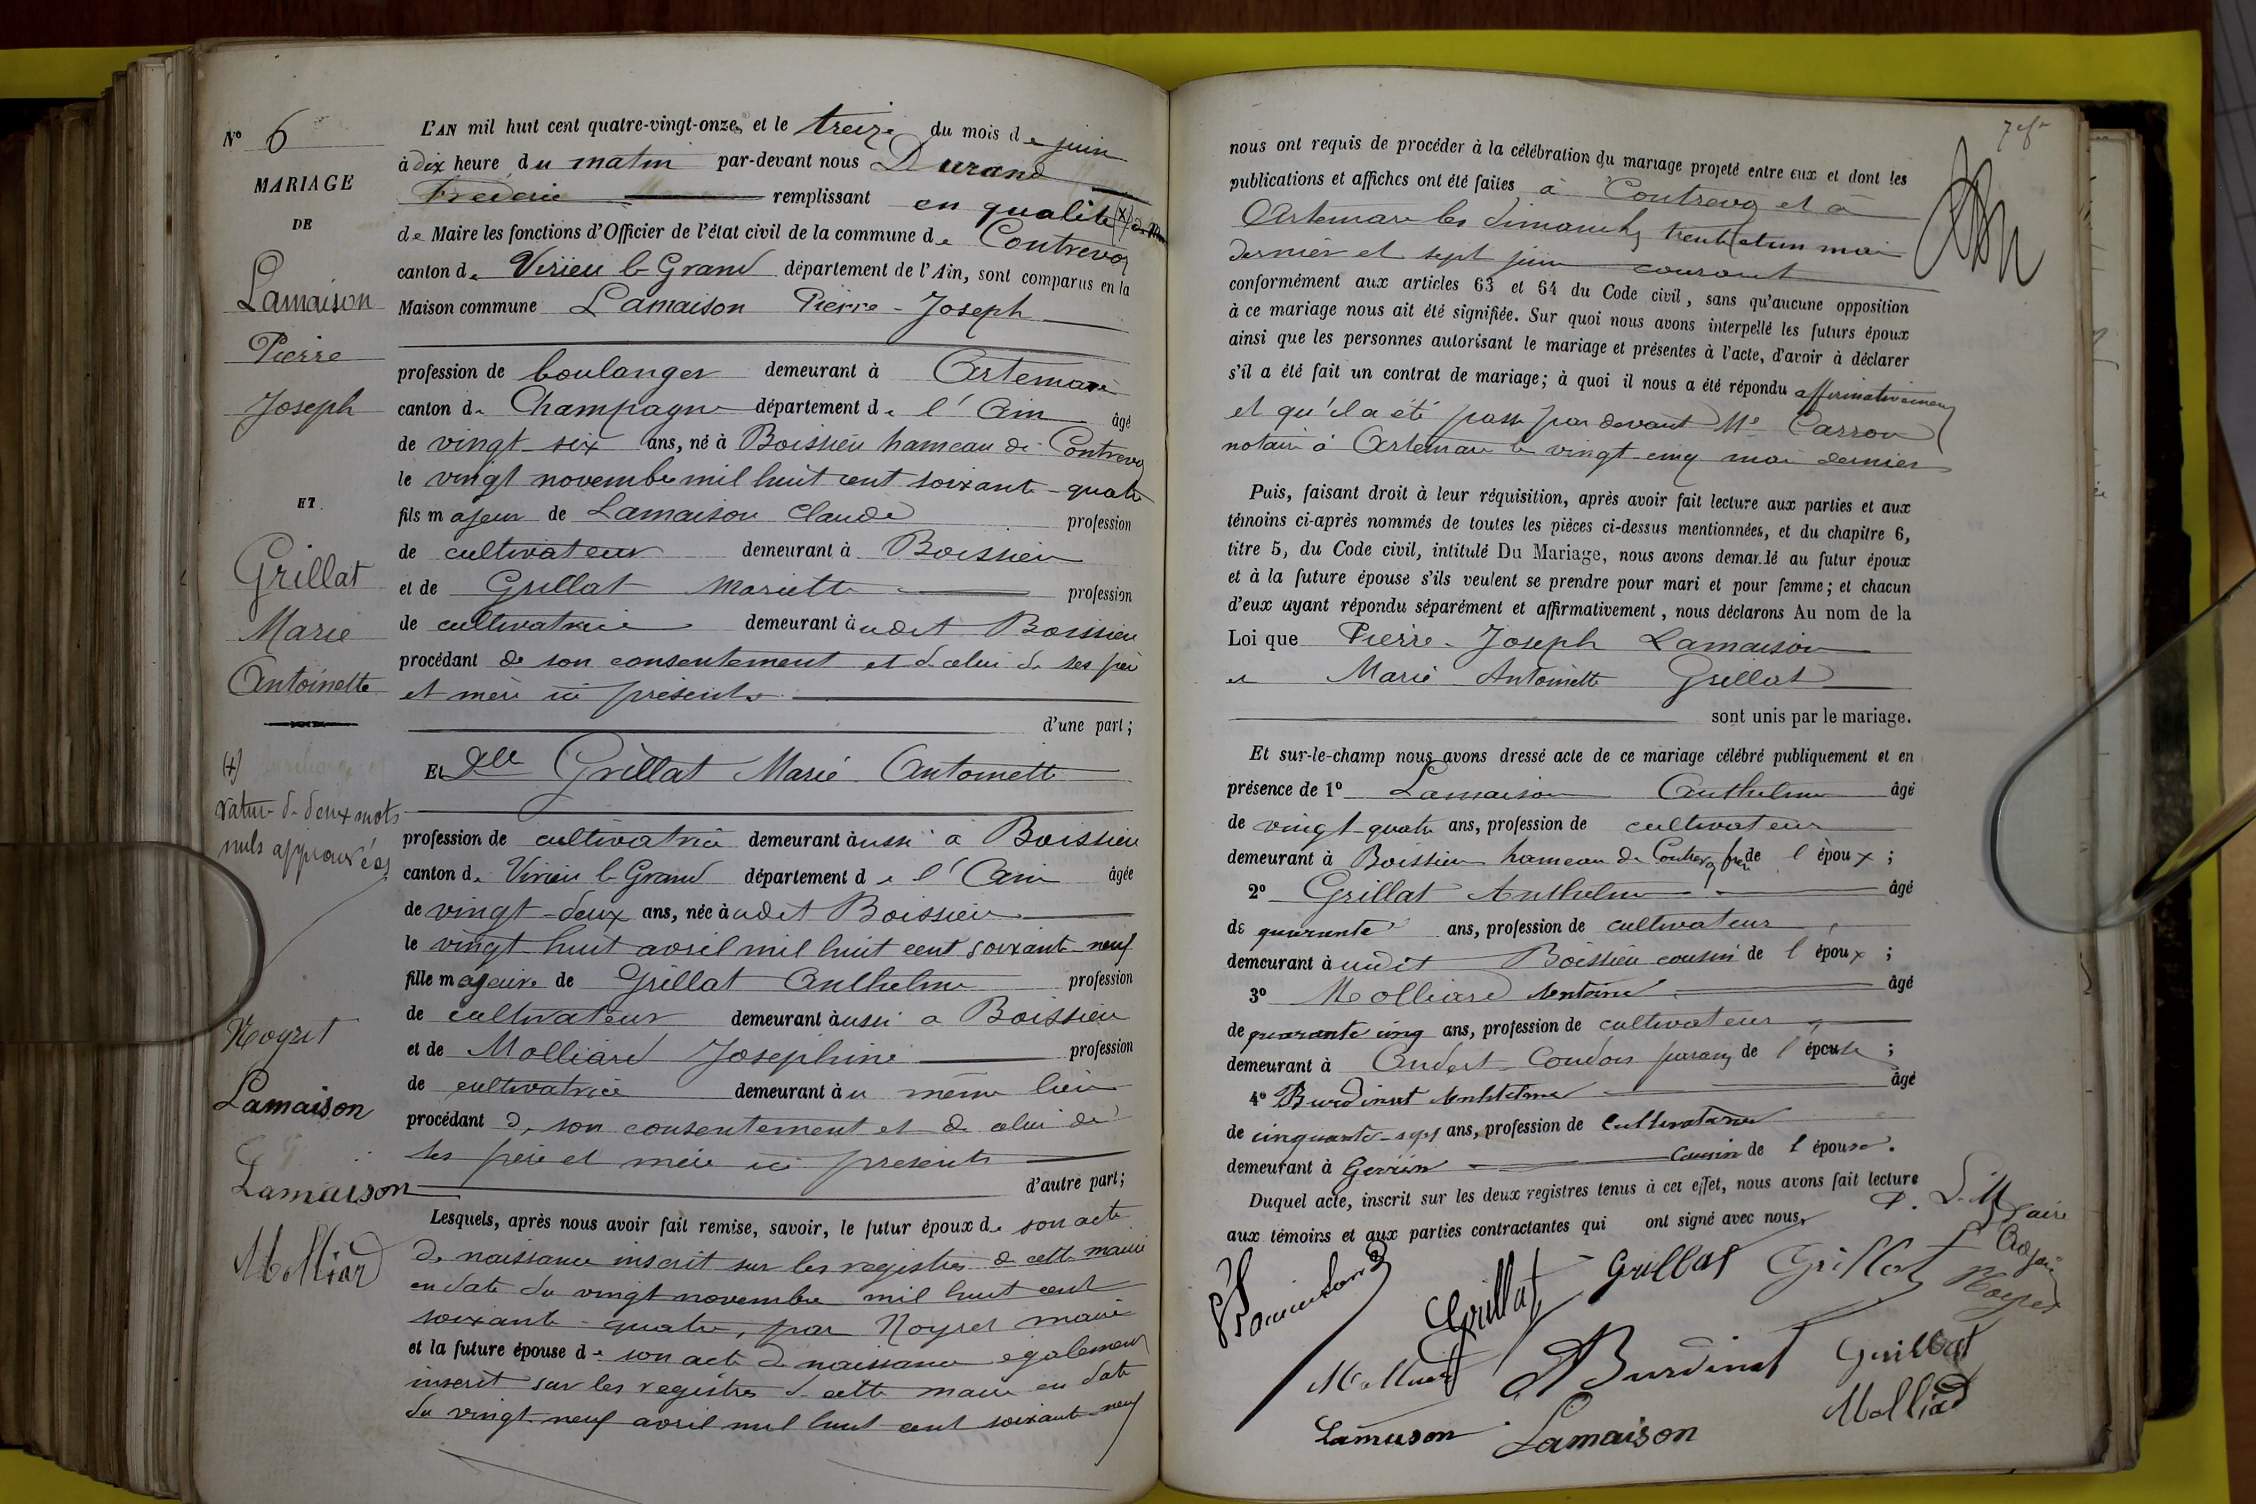 N° 6
MARIAGE
DE
Lamaison
Pierre
Joseph
ET
Grillat
Marie
Antoinette
(+)
rature de deux mots
nuls approuvées
Noyret
Lamaison
Lamaison
Molliard
L'AN mil huit cent quatre-vingt-onze, et le treize du mois de juin
à dix heure du matin par-devant nous Durand
Frédéric remplissant en qualité (x)
de Maire les fonctions d'Officier de l'état civil de la commune de Contrevoz
canton de Virieu le Grand département de l'Ain, sont comparus en la
Maison commune Lamaison Pierre-Joseph
profession de boulanger demeurant à Artemare
canton de Champagne département de l'Ain âgé
de vingt-six ans, né à Boissieu hameau de Contrevoz
le vingt novembre mil huit cent soixante-quatre
fils majeur de Lamaison Claude profession
de cultivateur demeurant à Boissieu
et de Grillat Mariette profession
de cultivatrice demeurant àudit Boissieu
procédant de son consentement et de celui de ses père
et mère ici présents
d'une part;
Et Dlle Grillat Marie Antoinette
profession de cultivatrice demeurant àussi à Boissieu
canton de Virieu le Grand département de l'Ain âgée
de vingt-deux ans, née àudit Boissieu
le vingt huit avril mil huit cent soixante-neuf
fille majeure de Grillat Anthelme profession
de cultivateur demeurant àussi a Boissieu
et de Molliard Josephine profession
de cultivatrice demeurant àu même lieu
procédant de son consentement et de celui de
ses père et mère ici présents
d'autre part;
Lesquels, après nous avoir fait remise, savoir, le futur époux de son acte
de naissance inscrit sur les registres de cette mairie
en date du vingt novembre mil huit cent
soixante-quatre, par Noyret maire
et la future épouse de son acte de naissance également
inscrit sur les registres de cette mairie en date
du vingt-neuf avril mil huit cent soixante-neuf
nous ont requis de procéder à la célébration du mariage projeté entre eux et dont les
publications et affiches ont été faites à Contrevoz et à
Artemare les dimanches trente et un mai
dernier et sept juin courant
conformément aux articles 63 et 64 du Code civil, sans qu'aucune opposition
à ce mariage nous ait été signifiée. Sur quoi nous avons interpellé les futurs époux
ainsi que les personnes autorisant le mariage et présentes à l'acte, d'avoir à déclarer
s'il a été fait un contrat de mariage; à quoi il nous a été répondu affirmativement
et qu'il a été passé par devant Me Carron
notaire à Artemare le vingt-cinq mai dernier
Puis, faisant droit à leur réquisition, après avoir fait lecture aux parties et aux
témoins ci-après nommés de toutes les pièces ci-dessus mentionnées, et du chapitre 6,
titre 5, du Code civil, intitulé Du Mariage, nous avons demandé au futur époux
et à la future épouse s'ils veulent se prendre pour mari et pour femme; et chacun
d'eux ayant répondu séparément et affirmativement, nous déclarons Au nom de la
Loi que Pierre-Joseph Lamaison
et Marie Antoinette Grillat
sont unis par le mariage.
Et sur-le-champ nous avons dressé acte de ce mariage célébré publiquement et en
présence de 1° Lamaison Anthelme âgé
de vingt-quatre ans, profession de cultivateur
demeurant à Boissieu hameau de Contrevoz frère de l'époux;
2° Grillat Anthelme âgé
de quarante ans, profession de cultivateur
demeurant à udit Boissieu cousin de l'époux;
3° Molliard Antoine âgé
de quarante cinq ans, profession de cultivateur
demeurant à Andert-Condon parain de l'épouse;
4° Burdinat Anthelme âgé
de cinquante-sept ans, profession de Cultivateur
demeurant à Cousin de l'épouse.
Duquel acte, inscrit sur les deux registres tenus à cet effet, nous avons fait lecture
aux témoins et aux parties contractantes qui ont signé avec nous,
P. Le Maire
L'Adjoint
Noyret
Grillat
Grillat
Grillat
Burdinat
Grillat
Molliard
Lamaison
Lamaison